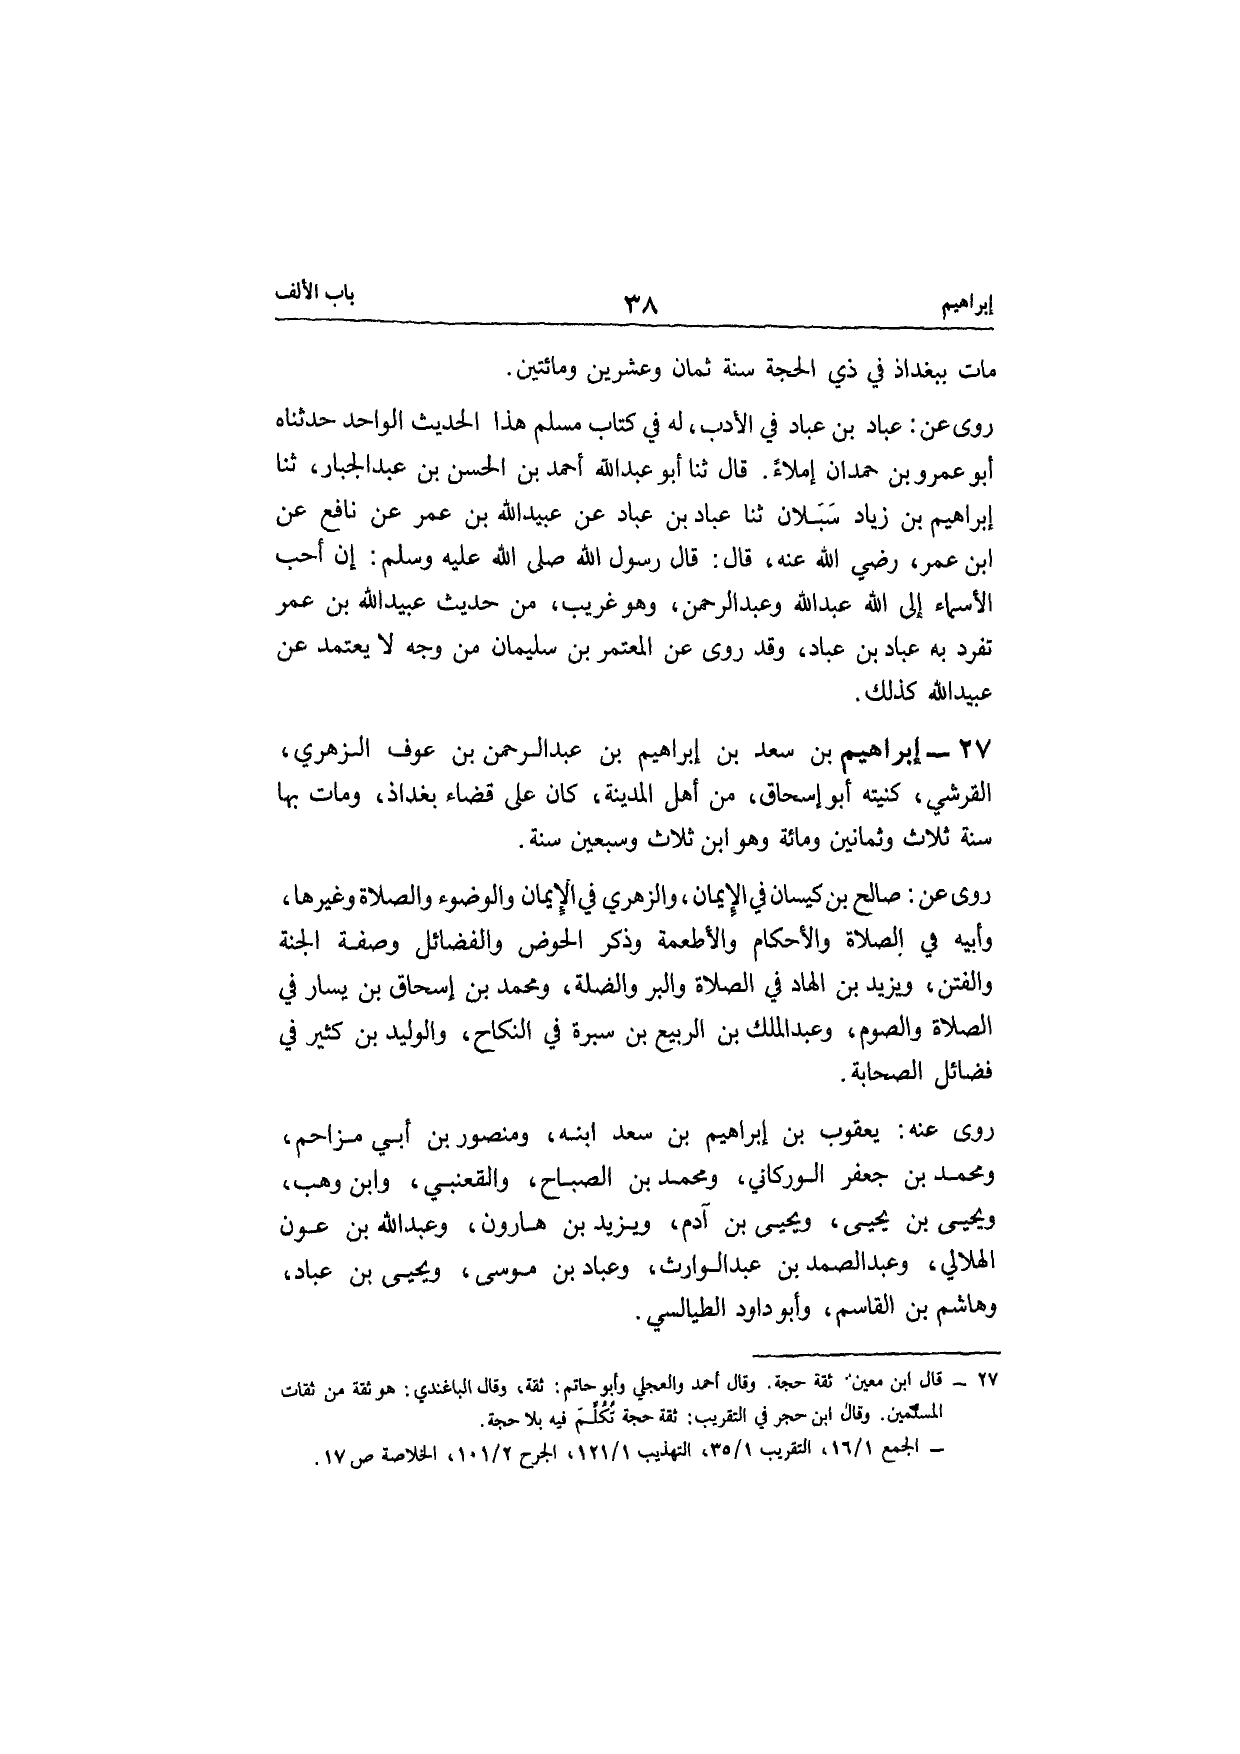 إبراهيم ٣٨ باب الألف
مات ببغداذ في ذي الحجة سنة ثمان وعشرين ومائتين.
روى عن: عباد بن عباد في الأدب، له في كتاب مسلم هذا الحديث الواحد حدثناه
أبو عمرو بن حمدان إملاءً. قال ثنا أبو عبدالله أحمد بن الحسن بن عبدالجبار، ثنا
إبراهيم بن زياد سَبَلان ثنا عباد بن عباد عن عبيدالله بن عمر عن نافع عن
ابن عمر، رضي الله عنه، قال: قال رسول الله صلى الله عليه وسلم: إن أحب
الأسماء إلى الله عبدالله وعبدالرحمن، وهو غريب، من حديث عبيدالله بن عمر
تفرد به عباد بن عباد، وقد روى عن المعتمر بن سليمان من وجه لا يعتمد عن
عبيدالله كذلك.
٢٧ ــ إبراهيم بن سعد بن إبراهيم بن عبدالرحمن بن عوف الزهري،
القرشي، كنيته أبو إسحاق، من أهل المدينة، كان على قضاء بغداذ، ومات بها
سنة ثلاث وثمانين ومائة وهو ابن ثلاث وسبعين سنة.
روى عن: صالح بن كيسان في الإيمان، والزهري في الإيمان والوضوء والصلاة وغيرها،
وأبيه في الصلاة والأحكام والأطعمة وذكر الحوض والفضائل وصفة الجنة
والفتن، ويزيد بن الهاد في الصلاة والبر والضلة، ومحمد بن إسحاق بن يسار في
الصلاة والصوم، وعبدالملك بن الربيع بن سبرة في النكاح، والوليد بن كثير في
فضائل الصحابة.
روى عنه: يعقوب بن إبراهيم بن سعد ابنه، ومنصور بن أبي مزاحم،
ومحمد بن جعفر الوركاني، ومحمد بن الصباح، والقعنبي، وابن وهب،
ويحيى بن يحيى، ويحيى بن آدم، ويزيد بن هارون، وعبدالله بن عون
الهلالي، وعبدالصمد بن عبدالوارث، وعباد بن موسى، ويحيى بن عباد،
وهاشم بن القاسم، وأبو داود الطيالسي.
٢٧ ــ قال ابن معين: ثقة حجة. وقال أحمد والعجلي وأبو حاتم: ثقة، وقال الباغندي: هو ثقة من ثقات
المسلمين. وقال ابن حجر في التقريب: ثقة حجة تُكُلِّمَ فيه بلا حجة.
ــ الجمع ١٦/١، التقريب ٣٥/١، التهذيب ١٢١/١، الجرح ١٠١/٢، الخلاصة ص ١٧.